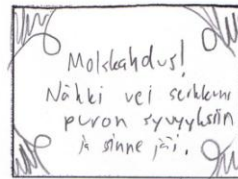 Molskahdus!
Näkki vei serkkuni
puron syvyyksiin
ja sinne jäi.